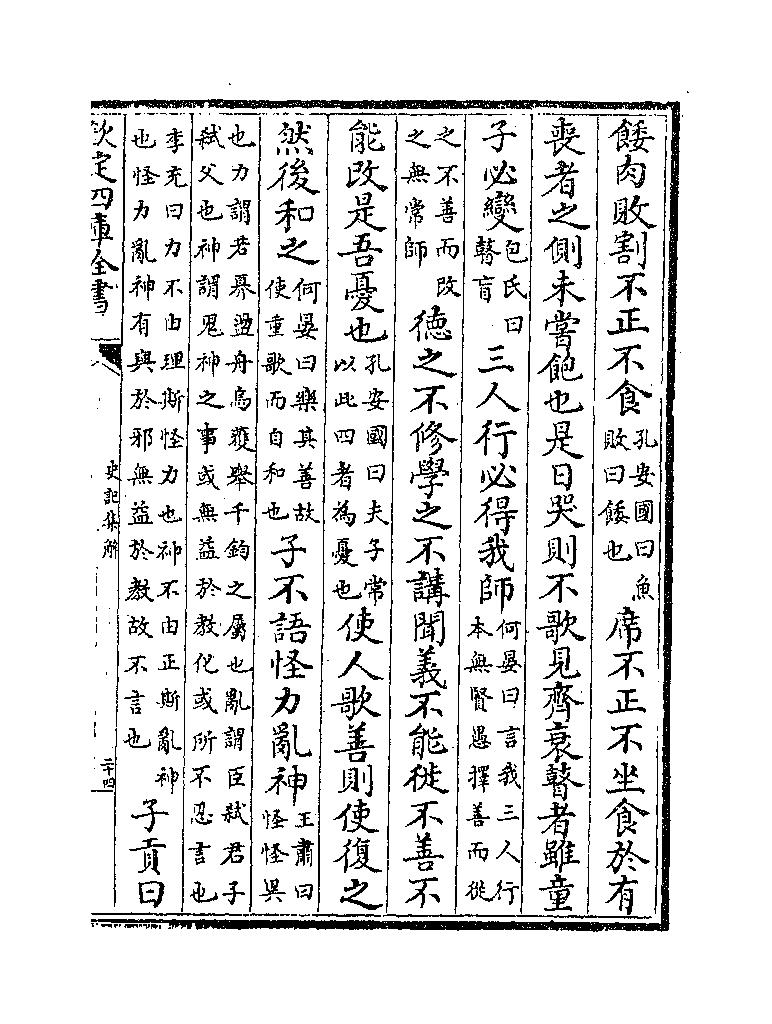 餧肉敗割不正不食孔安國曰魚敗曰餧也席不正不坐食於有
喪者之側未嘗飽也是日哭則不歌見齊衰瞽者雖童
子必變包氏曰瞽盲三人行必得我師何晏曰言我三人行本無賢愚擇善而從
之不善而改之無常師德之不修學之不講聞義不能徙不善不
能改是吾憂也孔安國曰夫子常以此四者為憂也使人歌善則使復之
然後和之何晏曰樂其善故使重歌而自和也子不語怪力亂神王肅曰怪怪異
也力謂若奡盪舟烏獲舉千鈞之屬也亂謂臣弑君子弑父也神謂鬼神之事或無益於教化或所不忍言也
李充曰力不由理斯怪力也神不由正斯亂神也怪力亂神有與於邪無益於教故不言也子貢曰
欽定四庫全書
史記集解
二十四